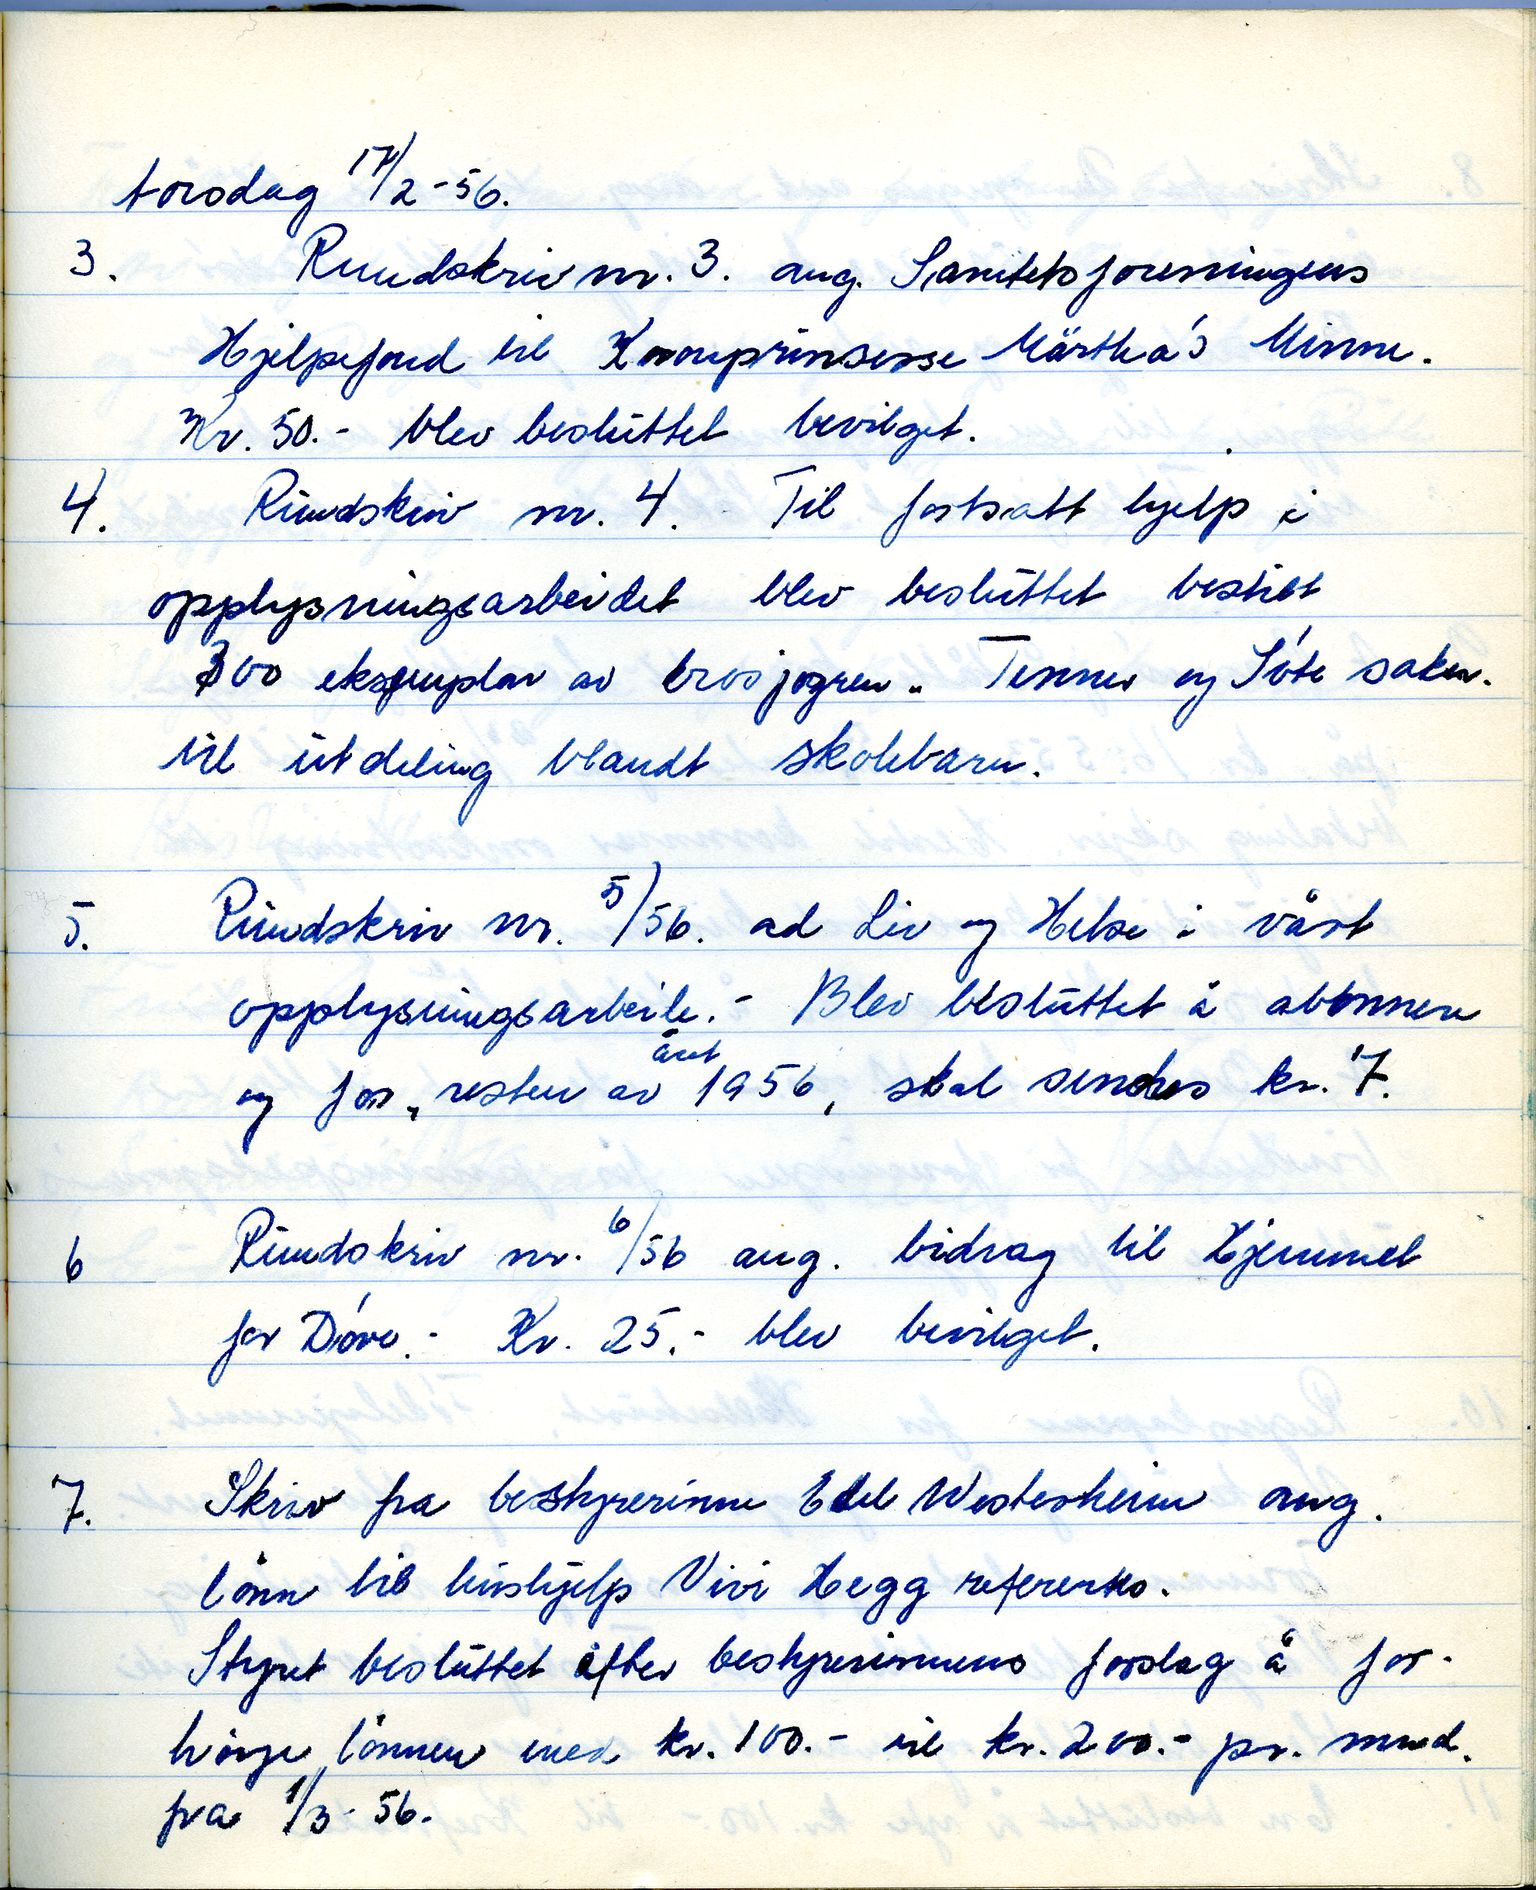 torsdag 17/2-56.
3. Rundskriv nr. 3. ang. Sanitetsforeningens
Hjelpefond til Kronprinsesse Märtha's Minne.
Kr. 50.- blev besluttet bevilget.
4. Rundskriv nr. 4. Til fortsatt hjelp i
opplysningsarbeidet blev besluttet bestilt
300 eksemplar av brosjyren " Tenner og Söte saker.
til utdeling blandt skolebarn.
5. Rundskriv nr. 5/56. ad Liv og Helse i vårt
opplysningsarbeide.- Blev besluttet å abonnere
og for, resten av året 1956, skal sendes kr. 7.
6 Rundskriv nr. 6/56 ang. bidrag til Hjemmet
for Döve.- Kr. 25.- blev bevilget.
7. Skriv fra bestyrerinne Edel Westerheim ang.
lönn til hushjelp Vivi Hegg referertes.
Styret besluttet efter bestyrerinnens forslag å for-
höye lönnen med kr. 100.- til kr. 200.- pr. mnd.
fra 1/3-56.